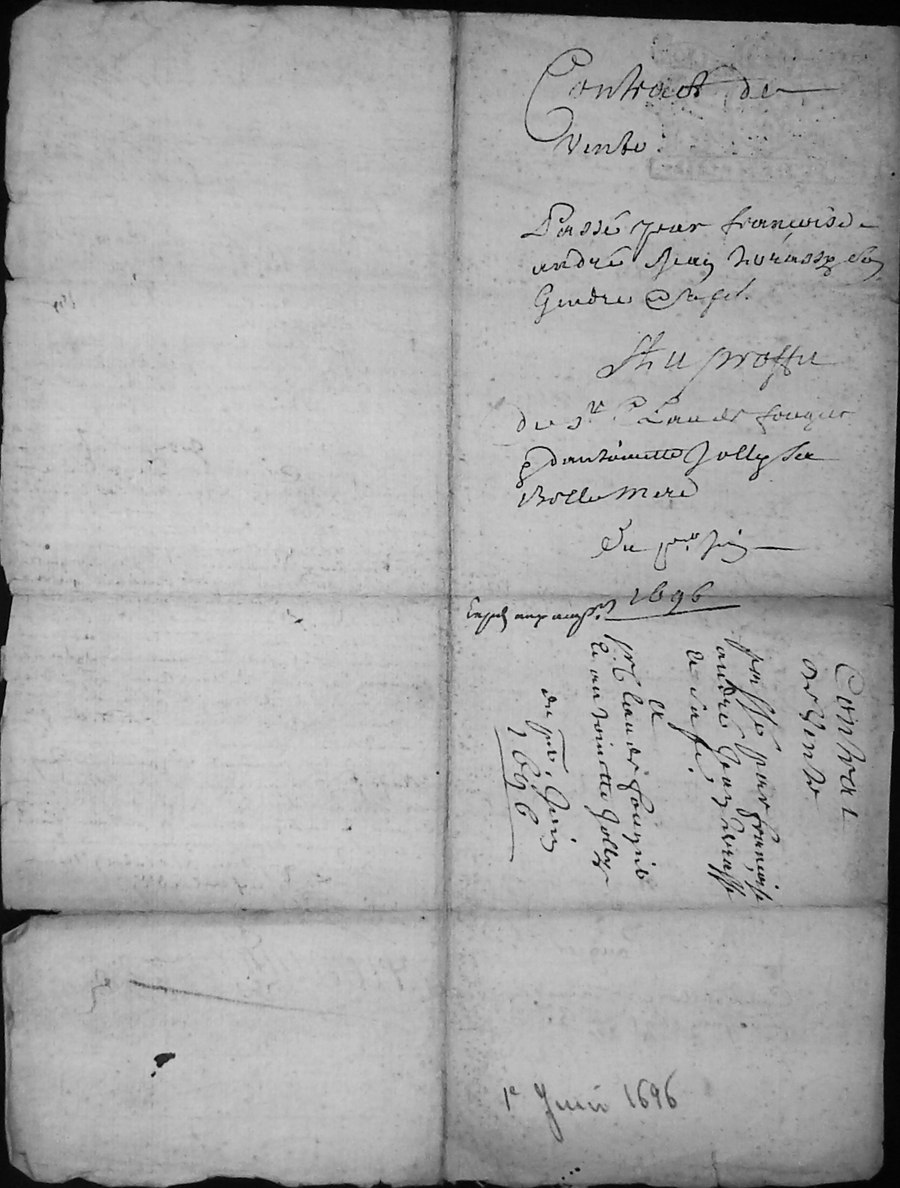 Contract de
Vente
Passé par françoise
andré Jean son
Gendre & sa fel.
Au proffit
du Sr Claude fouquet
& dantoinette Jolly sa
Belle Mere
Du per Juin
1696
Contrat
de Vente
passé par françoise
andré Jean
a
Sr Claude
& antoinette Jolly
du pr. Juin
1696
1e Juin 1696